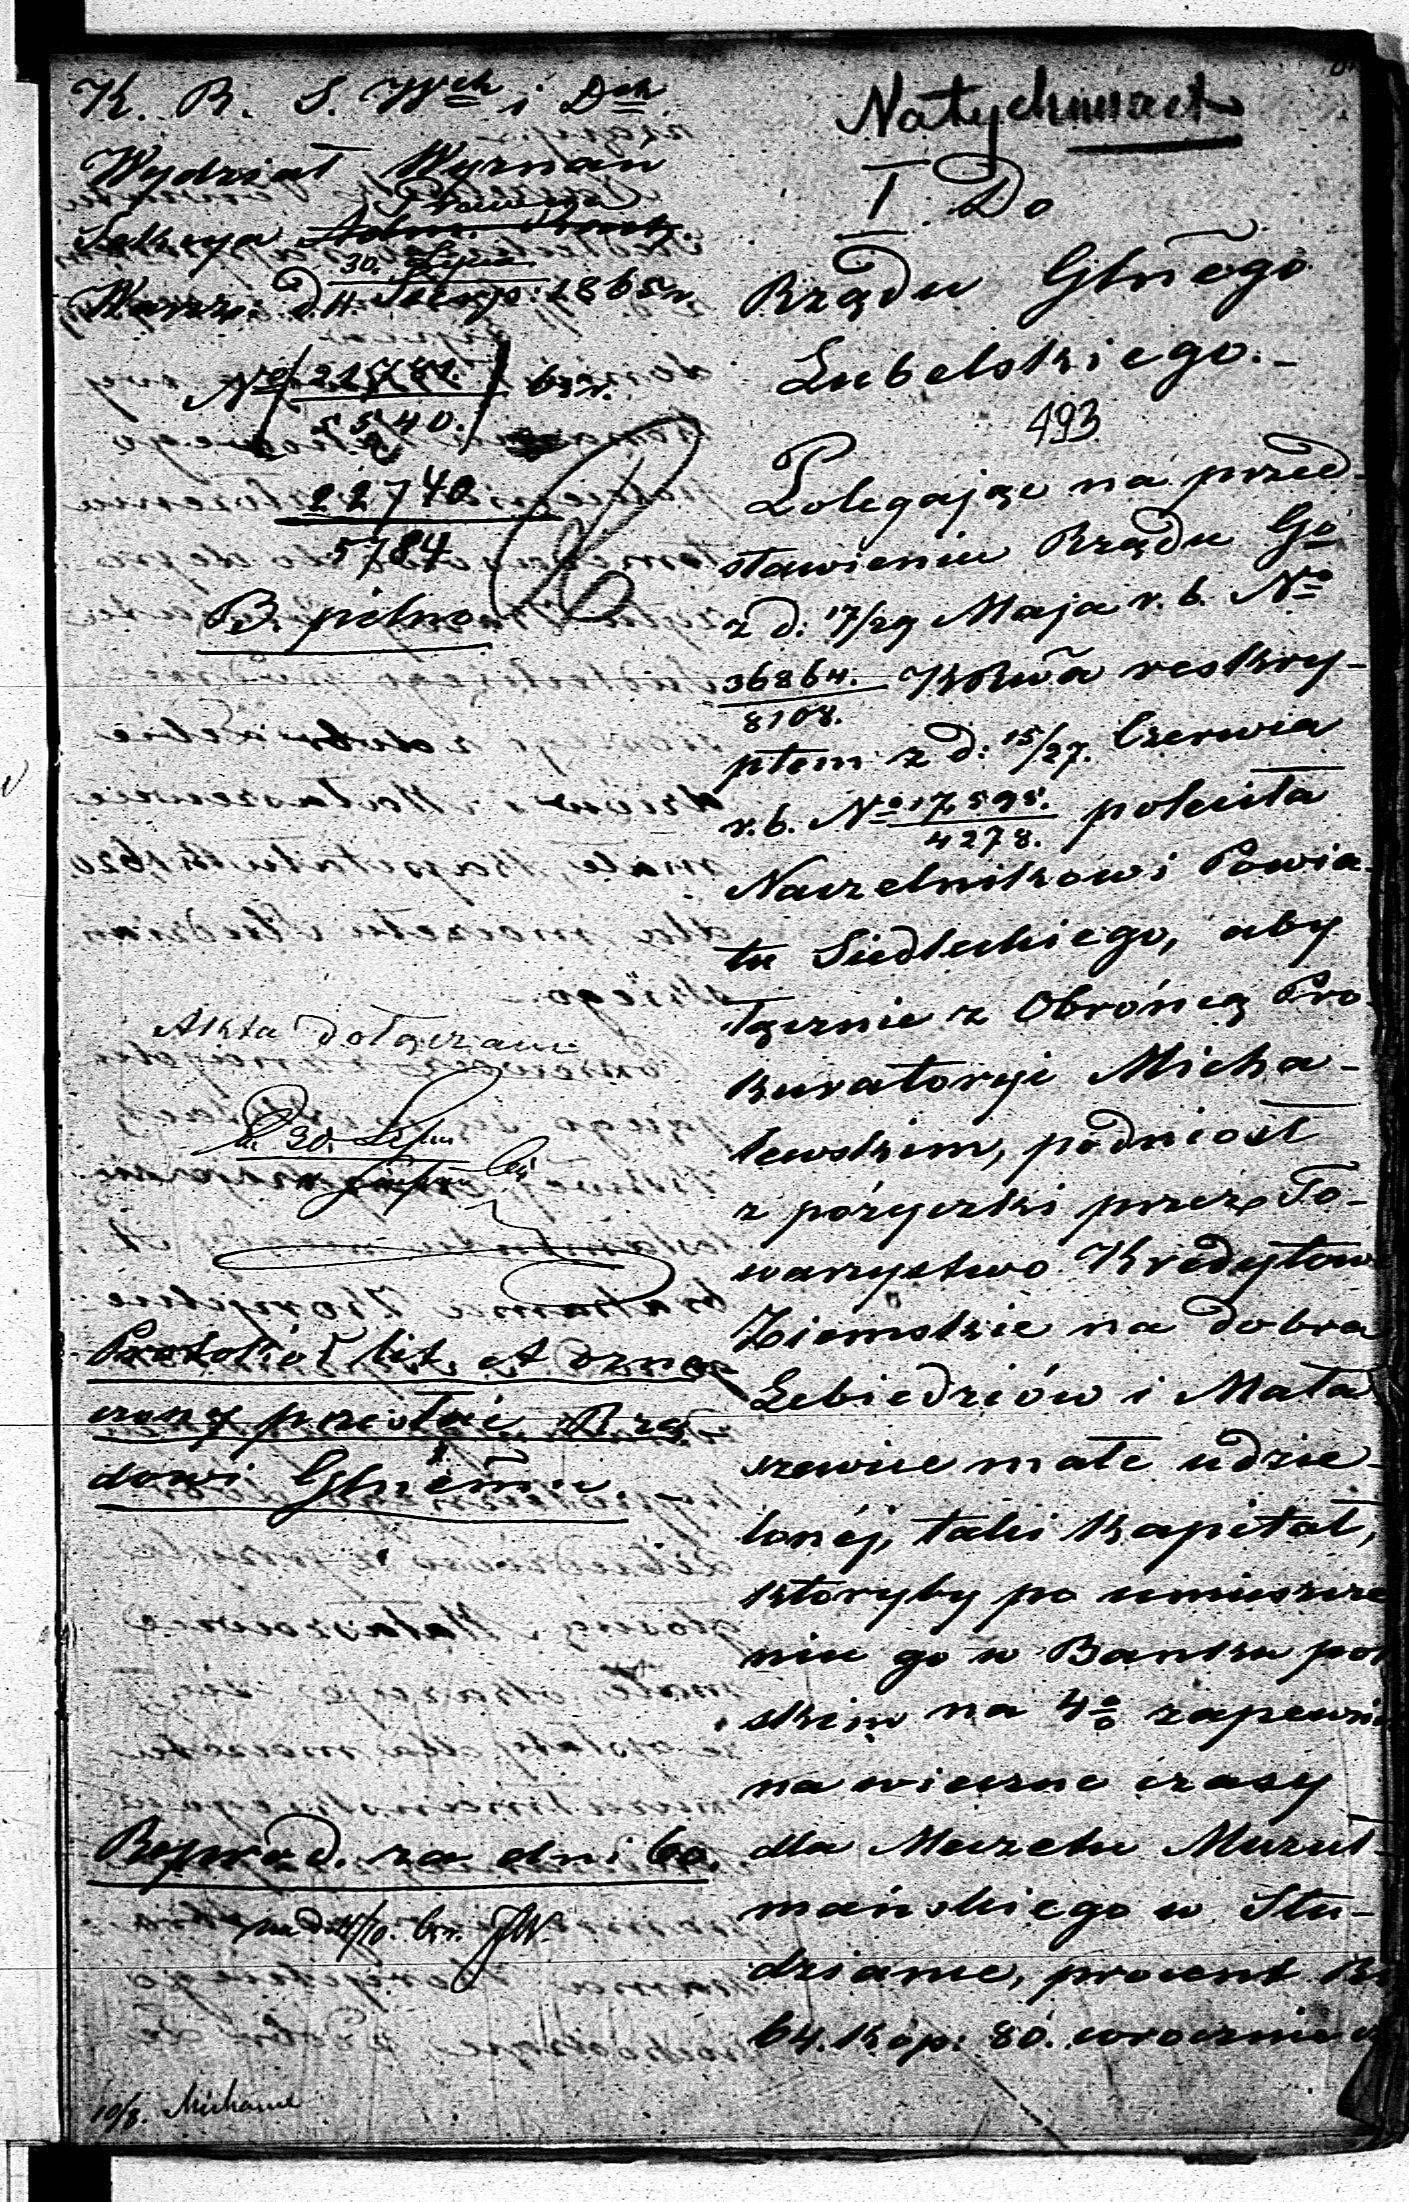 K. R. S. Wch i Dch
Wydział Wyznań
Prawna
Sekcya
30. Lipca
Warsz. d. 11. Sierp: 1865 r.
No 22740
5784
B. pilno
Akta dołączam
d. 30. Lipca
Protokół lit. A ozna-
czony przesłać Rzą-
dowi Glnemu.
Reprod. za dni 60.
10/8. Michaux
Natychmiast
I. Do
Rządu Glnego
Lubelskiego.-
493
Polegając na przed-
stawieniu Rządu Go
z d. 17/29 Maja r. b. No
36864.
8108.
KRwa reskry-
ptem z d: 15/27. Czerwca
r. b. No 17595.
4278.
poleciła
Naczelnikowi Powia-
tu Siedleckiego, aby
łącznie z Obrońcą Pro-
kuratoryi Micha-
lewskim, podniósł
z pożyczki przez To-
warzystwo Kredytowe
Ziemskie na dobra
Lebiedziów i Mała
szewicze małe udzie-
lonéj, taki kapitał,
któryby po umieszcze
niu go w Banku pol
skim na 4% zapewnił
na wieczne czasy
dla Meczetu Muzuł-
mańskiego w Stu-
dziance, procent Rs
64. kop: 80. wrocznie